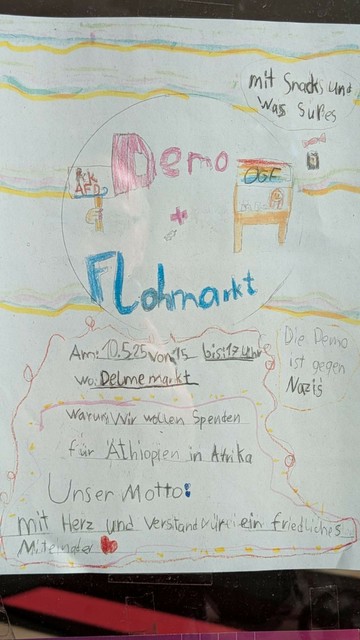 mit Snacks und
was süßes
Demo
AFD
+
Flohmarkt
Am: 10.5.25 von 15 bis: 17 uhr
wo: Delmemarkt
Die Demo
ist gegen
Nazis
Warum Wir wollen Spenden
für Äthiopien in Afrika
Unser Motto:
mit Herz und Verstand für ein friedliches
Miteinader